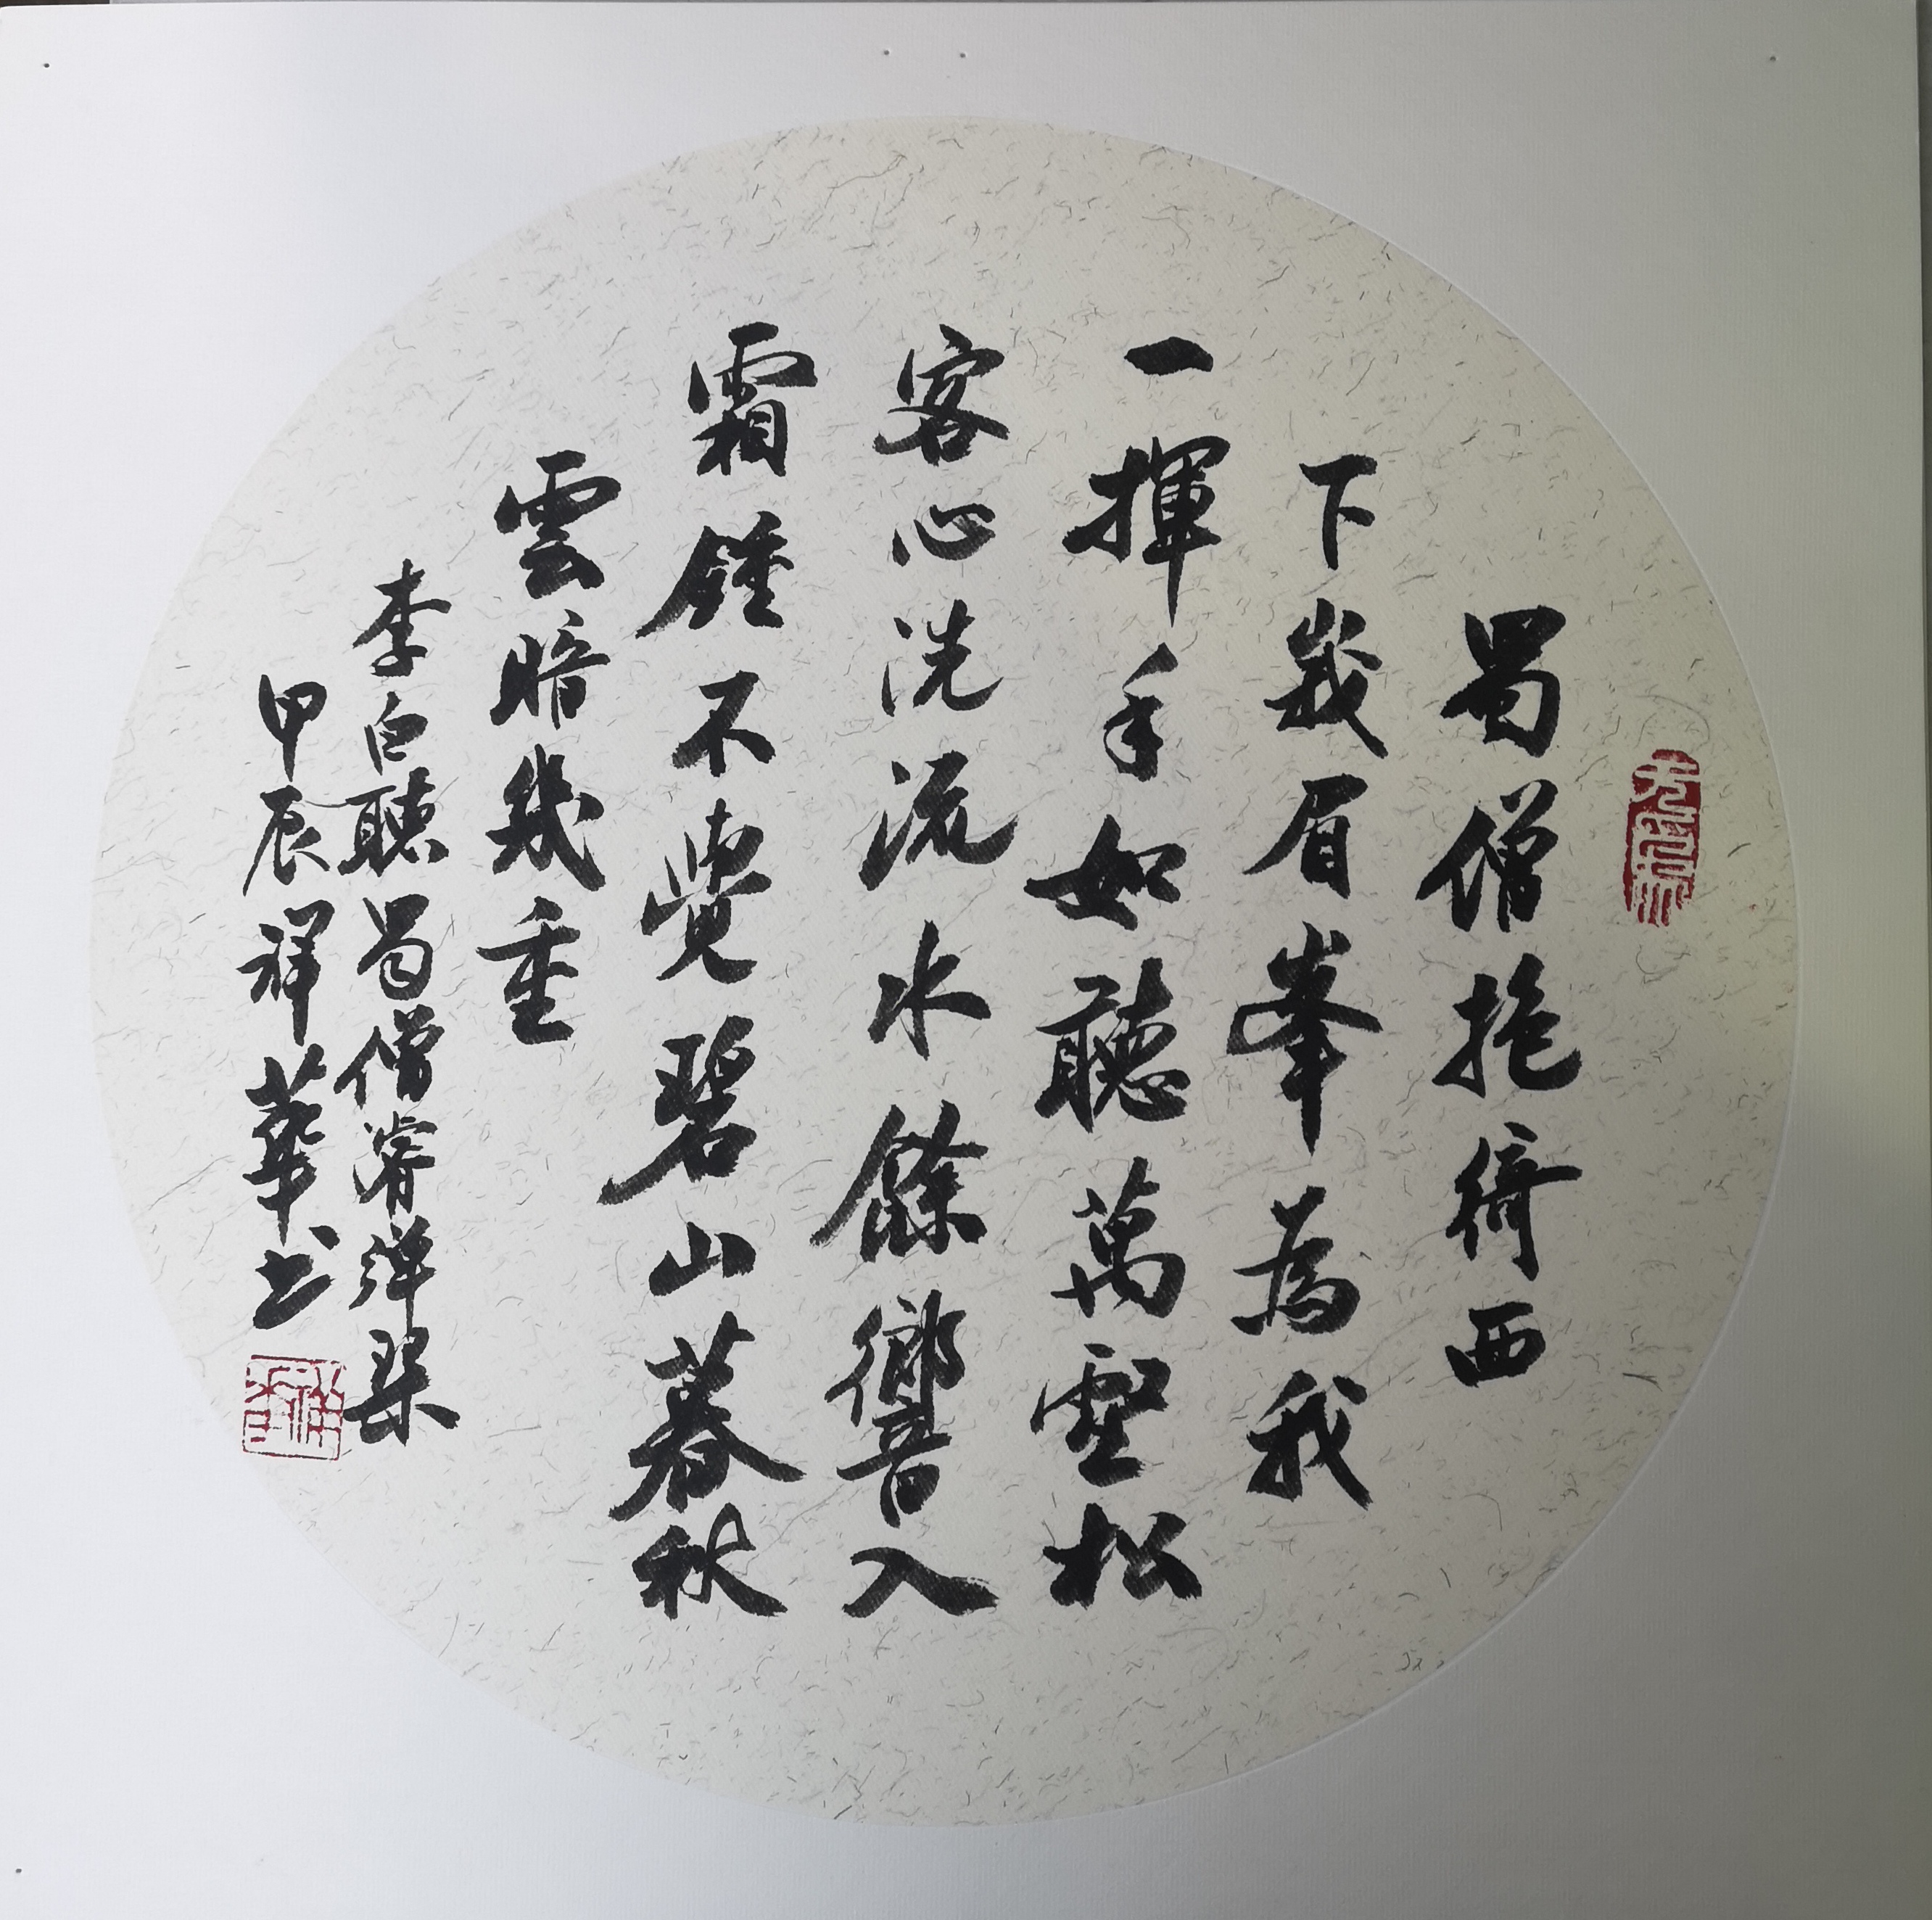 蜀僧抱綺西
下峩眉峯為我
一揮手如聽萬壑松
客心洗流水餘響入
霜鍾不覺碧山暮秋
雲暗幾重
李白聽蜀僧濬彈琴
甲辰祥華书